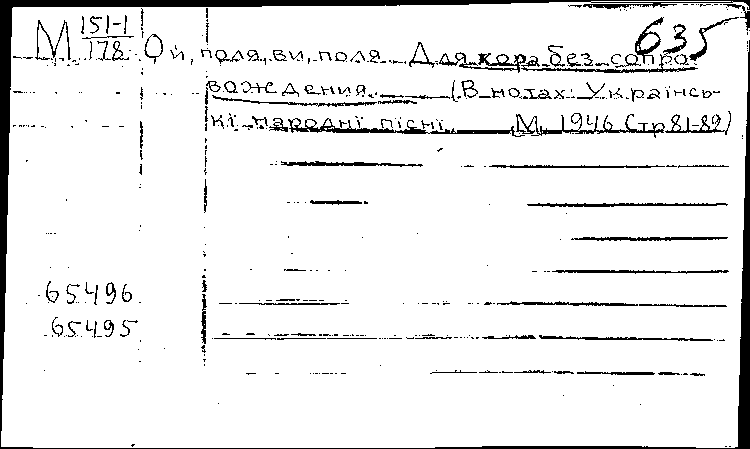 635
М 151-1/178 Ой, поля, ви, поля. Для хора без сопро
вождения. (В нотах: Українсь-
кі народні пісні. М. 1946 Стр 81-82)
65496
65495